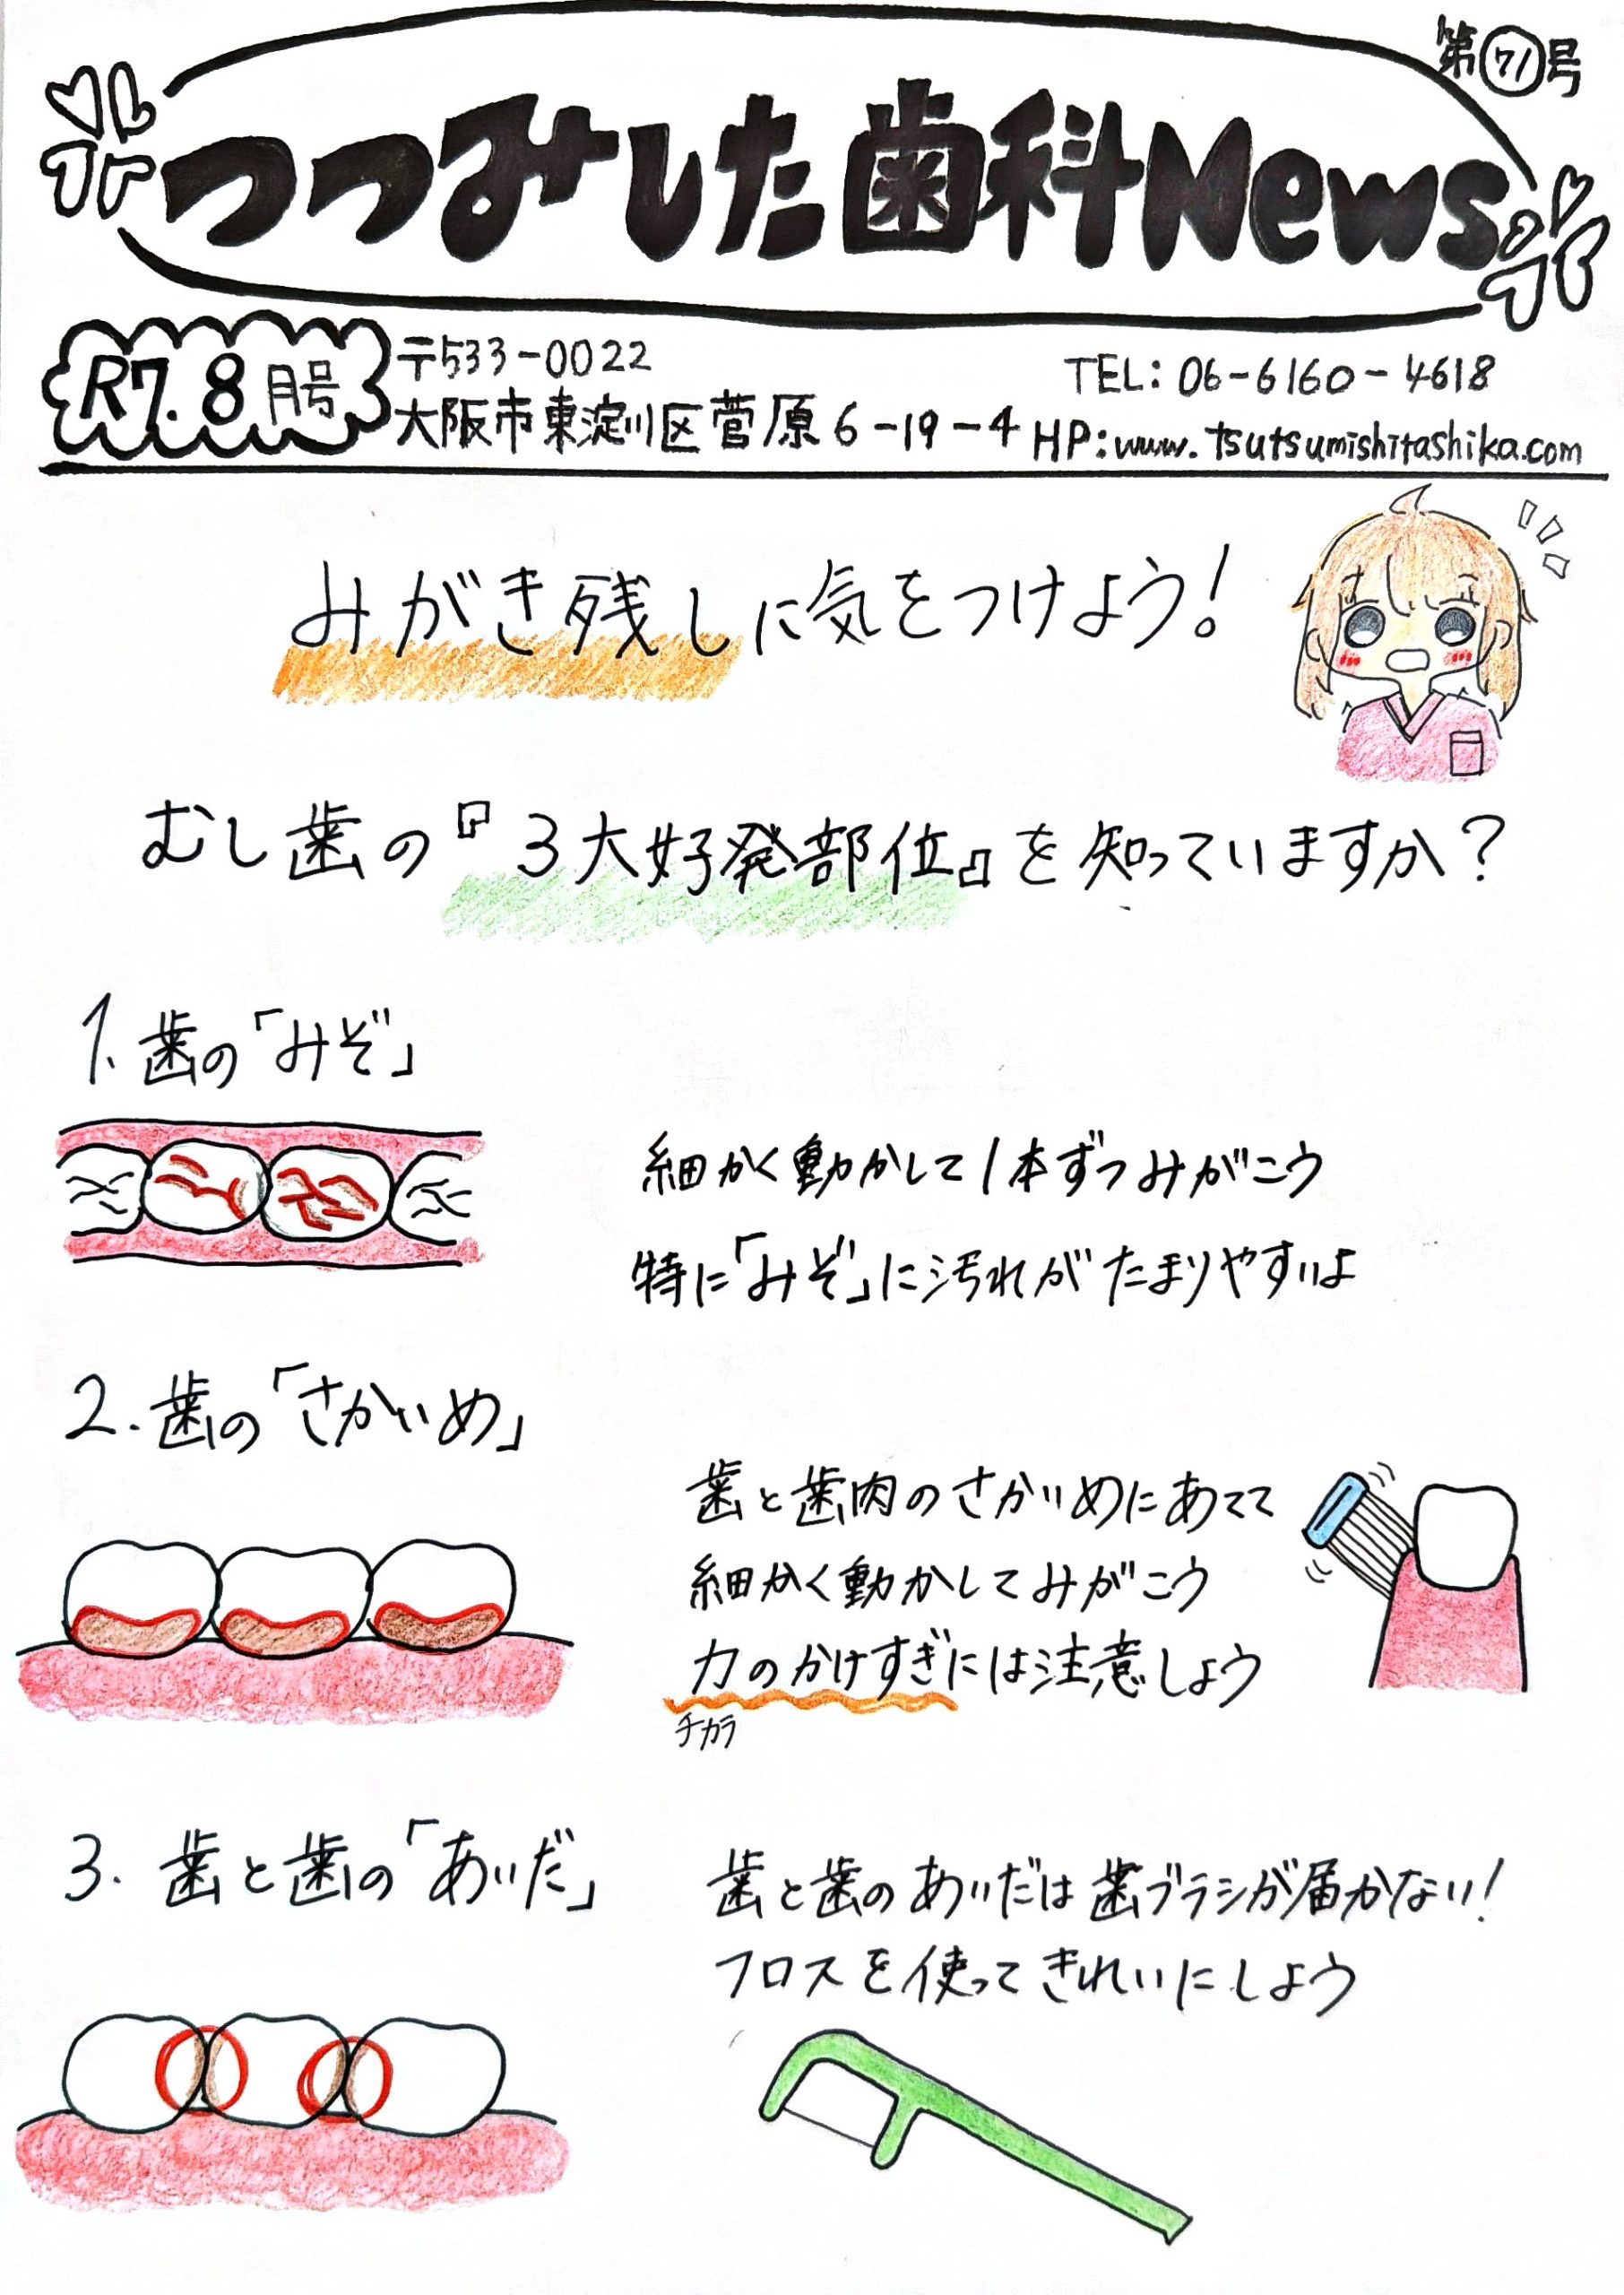 第71号
つつみした歯科News
R7.8月号
〒533-0022
大阪市東淀川区菅原6-19-4
TEL:06-6160-4618
HP:www.tsutsumishitashika.com
みがき残しに気をつけよう!
むし歯の『3大好発部位』を知っていますか?
1.歯の「みぞ」
細かく動かして1本ずつみがこう
特に「みぞ」に汚れがたまりやすいよ
2.歯の「さかいめ」
歯と歯肉のさかいめにあてて
細かく動かしてみがこう
力のかけすぎには注意しよう
チカラ
3.歯と歯の「あいだ」
歯と歯のあいだは歯ブラシが届かない!
フロスを使ってきれいにしよう